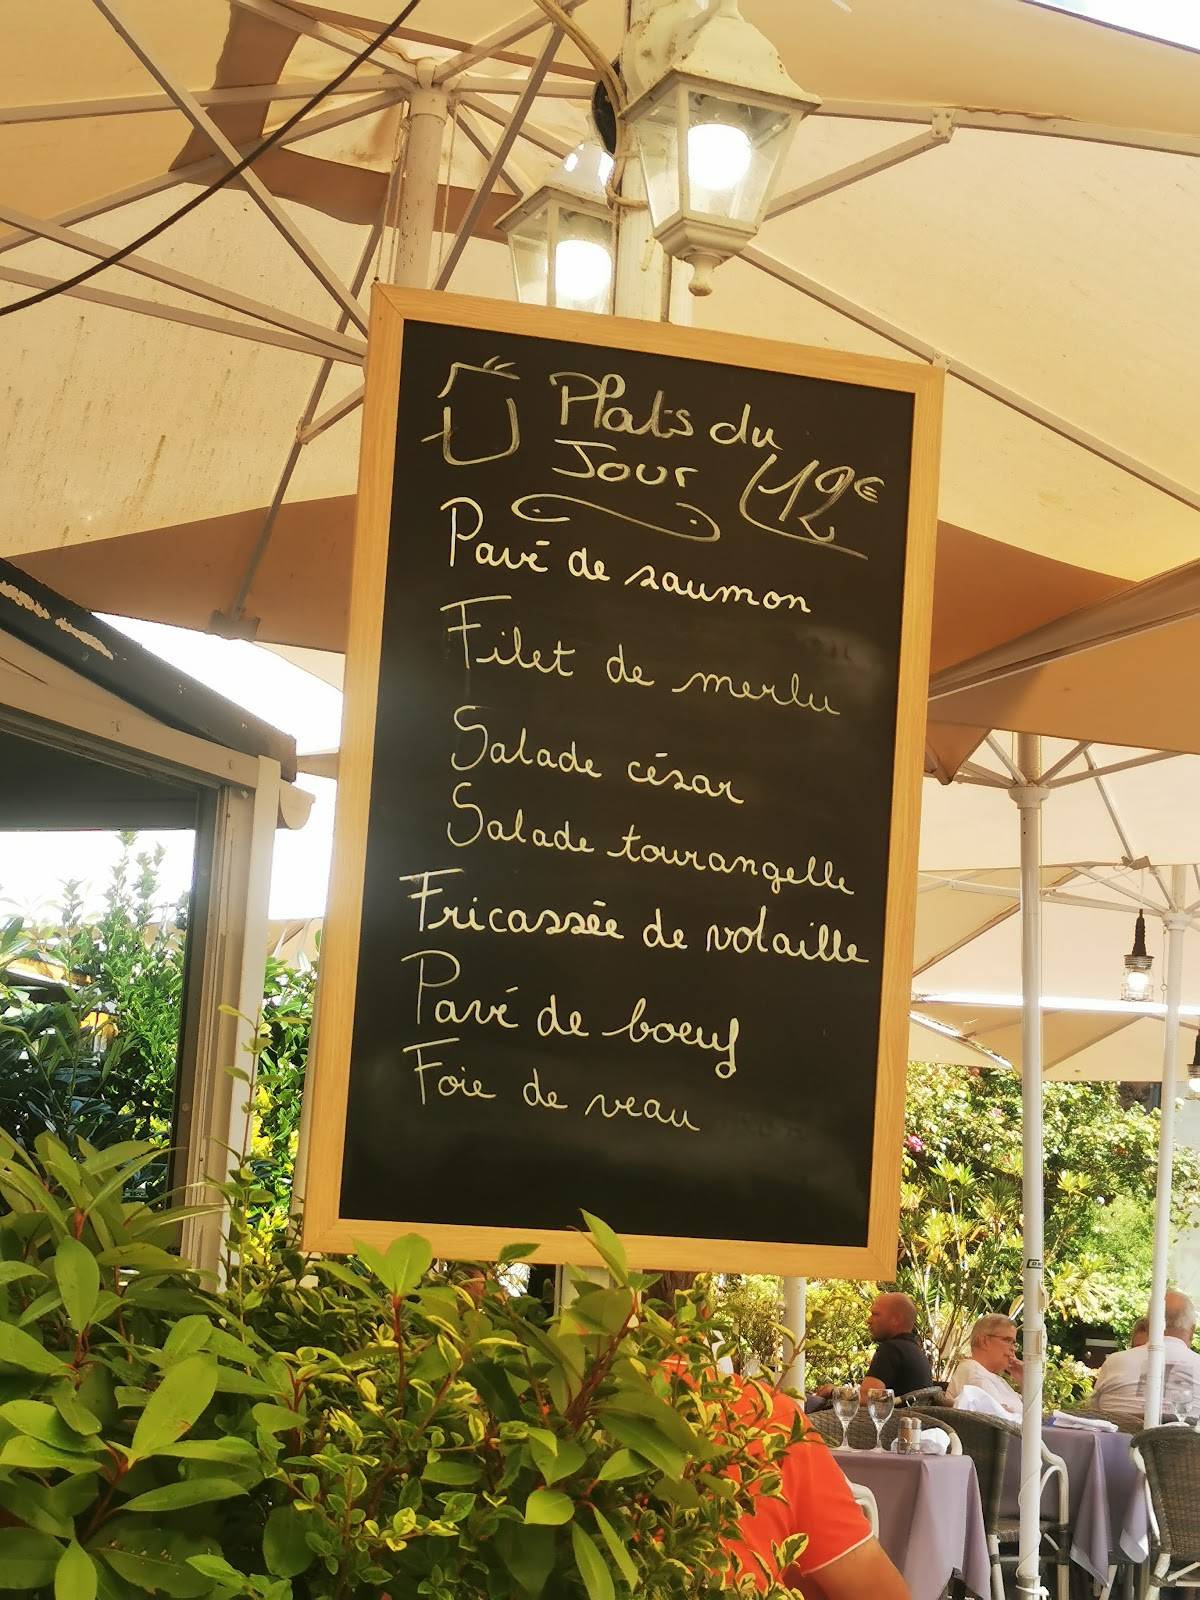 Plats du
Jour 12€
Pavé de saumon
Filet de merlu
Salade césar
Salade tourangelle
Fricassée de volaille
Pavé de boeuf
Foie de veau